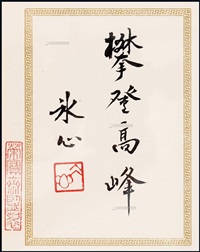 攀登高峰
冰心